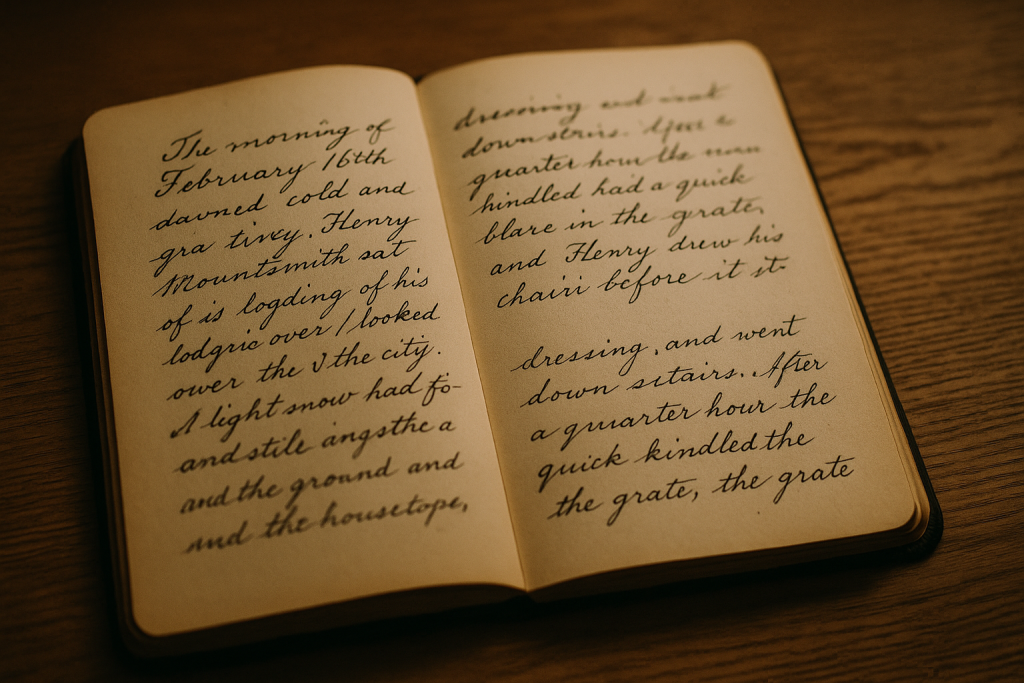 The morning of
February 16tth
davned cold and
gra tivey. Henry
Mountsmith sat
of is logding of his
lodgric over / looked
ower the I the city.
A light snow had fo-
and stile angsthe a
and the ground and
and the housetope,
dressinig and
downstrins. After a
quarter hour the
hindled had a quick
blare in the grate,
and Henry drew his
chairi before it it-
dressing, and went
down sitairs. After
a qmarter hour the
quick kindled the
the grate, the grate